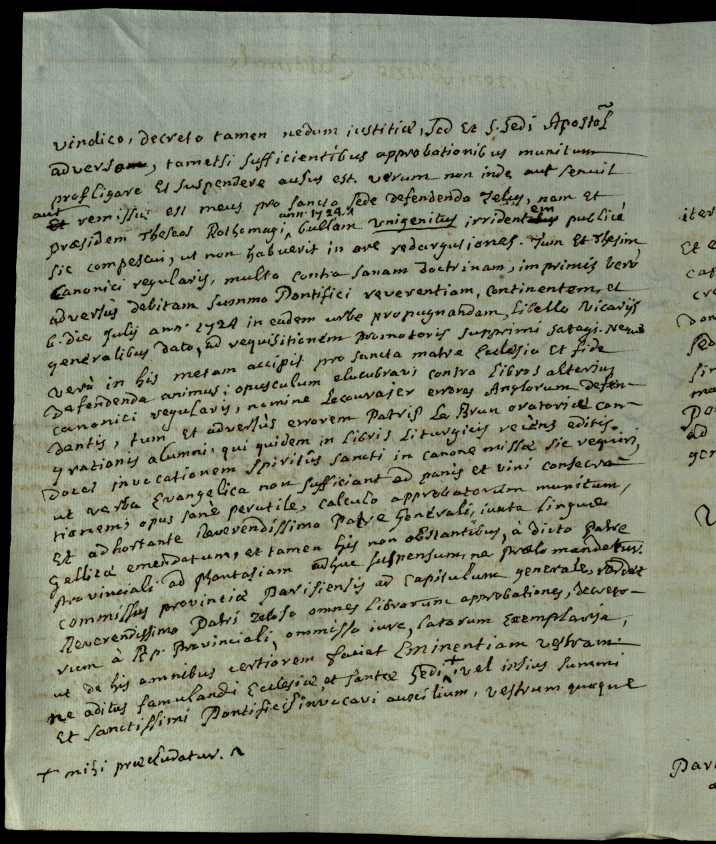 vindico, decreto tamen nedum iustitiæ, sed et S. Sedi Apostol
adverso, tametsi sufficientibus approbationibus munitum
profligare et suspendere ausus est. verum non inde aut senuit
aut remissus est meus pro sancta sede defendenda zelus, nam et
præsidem theseos Rothomagi ann. 1724. bullam unigenitus irridentem publicè
sic compescui, ut non habuerit in ore redargutiones. Tum et thesim
Canonici regularis, multa contra sanam doctrinam, imprimis verò
adversùs debitam summo Pontifici reverentiam, continentem, et
6. die Julij ann. 1724 in eadem urbe propugnandam, libello vicarijs
generalibus dato, ad requisitionem promotoris supprimi sategi. Neque
verò in his metam accipit pro sancta matre Ecclesia et fide
defendenda animus; opusculum elucubravi contra libros alterius
canonici regularis, nomine Lecourajer errores Anglorum defen-
dentis, tum et adversùs errorem Patris Le Brun oratorii con-
grationis alumni, qui quidem in libris liturgicis recens editis
docet invocationem spiritûs sancti in canone missæ sic requiri,
ut verba Evangelica non sufficiant ad panis et vini consecra-
tionem; opus sanè perutile, calculo approbatorum munitum,
et adhortante Reverendissimo Patre Generali, iuxta linguæ
gellicæ emendatum, et tamen his non obstantibus, à dicto Patre
Provinciali ad phantasiam adhuc suspensum, ne prælo mandetur.
commissus provinciæ Parisiensis ad capitulum generale,
Reverendissimo Patri zeloso omnes librorum approbationes, decreto-
rum à Rp. Provinciali, ommisso iure, latorum exemplaria,
ut de his omnibus certiorem faciat Eminentiam vestram
ne aditus famulandi Ecclesiæ, et sanctæ sedi + vel ipsius summi
et sanctissimi Pontificis invocavi auxilium, vestrum quoque
+ mihi præcludatur.
iter
Et e
Don
sed
ad
gen